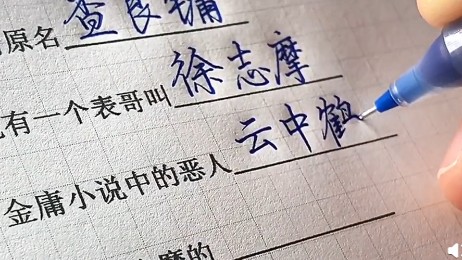 原名查良镛
有一个表哥叫徐志摩
金庸小说中的恶人云中鹤
摩的